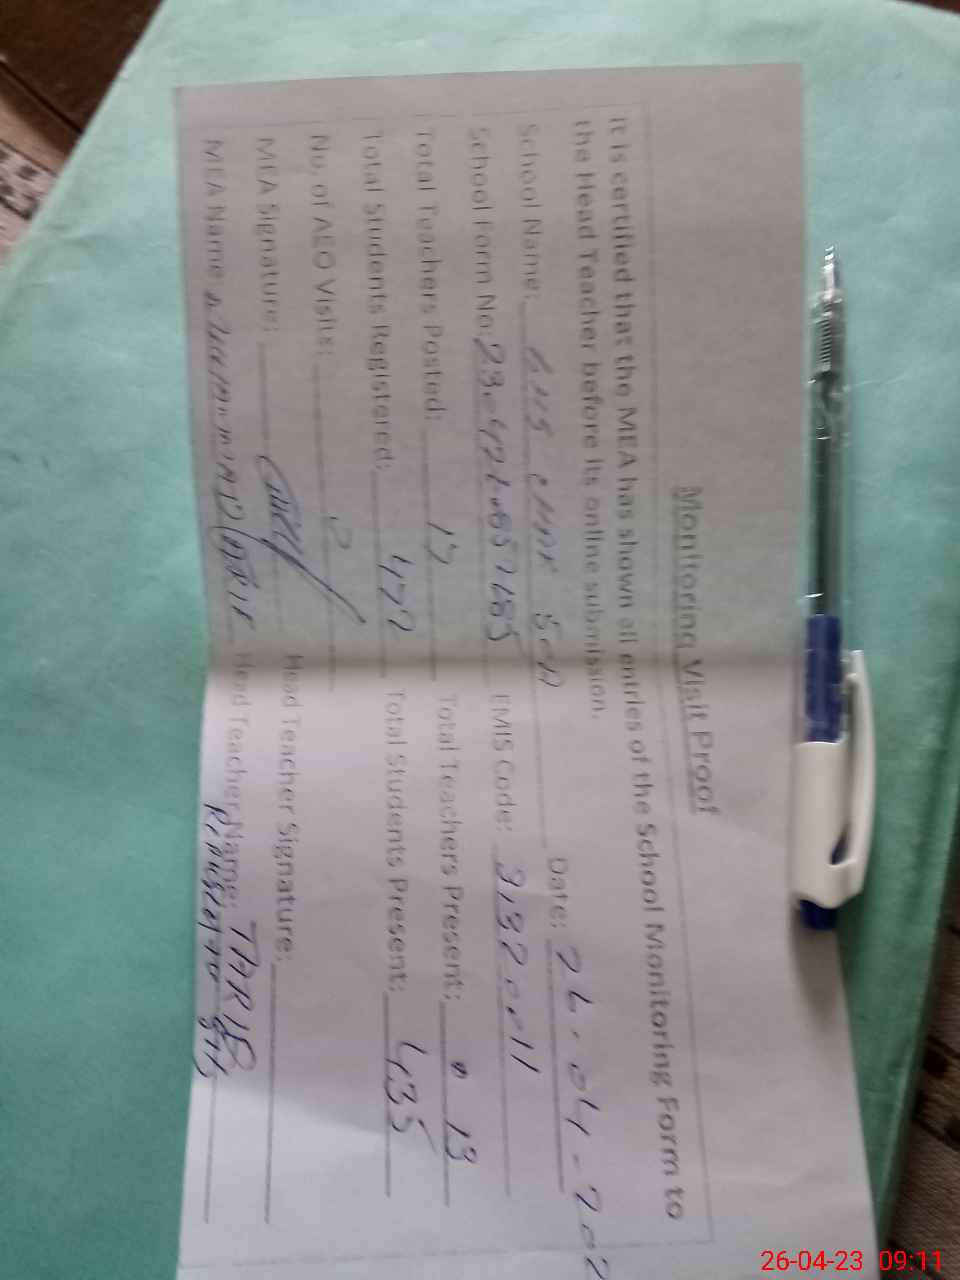 Monitoring Visit Proof
It is certified that the MEA has shown all entries of the School Monitoring Form to
the Head Teacher before its online submission.
School Name: GHS Date: 26-04-202
School Form No: EMIS Code: 31320011
Total Teachers Posted: 17 Total Teachers Present: 13
Total Students Registered: 477 Total Students Present: 435
No. of AEO Visits: 2
MEA Signature: Head Teacher Signature:
MEA Name: Head Teacher Name: TARIQ
26-04-23 09:11